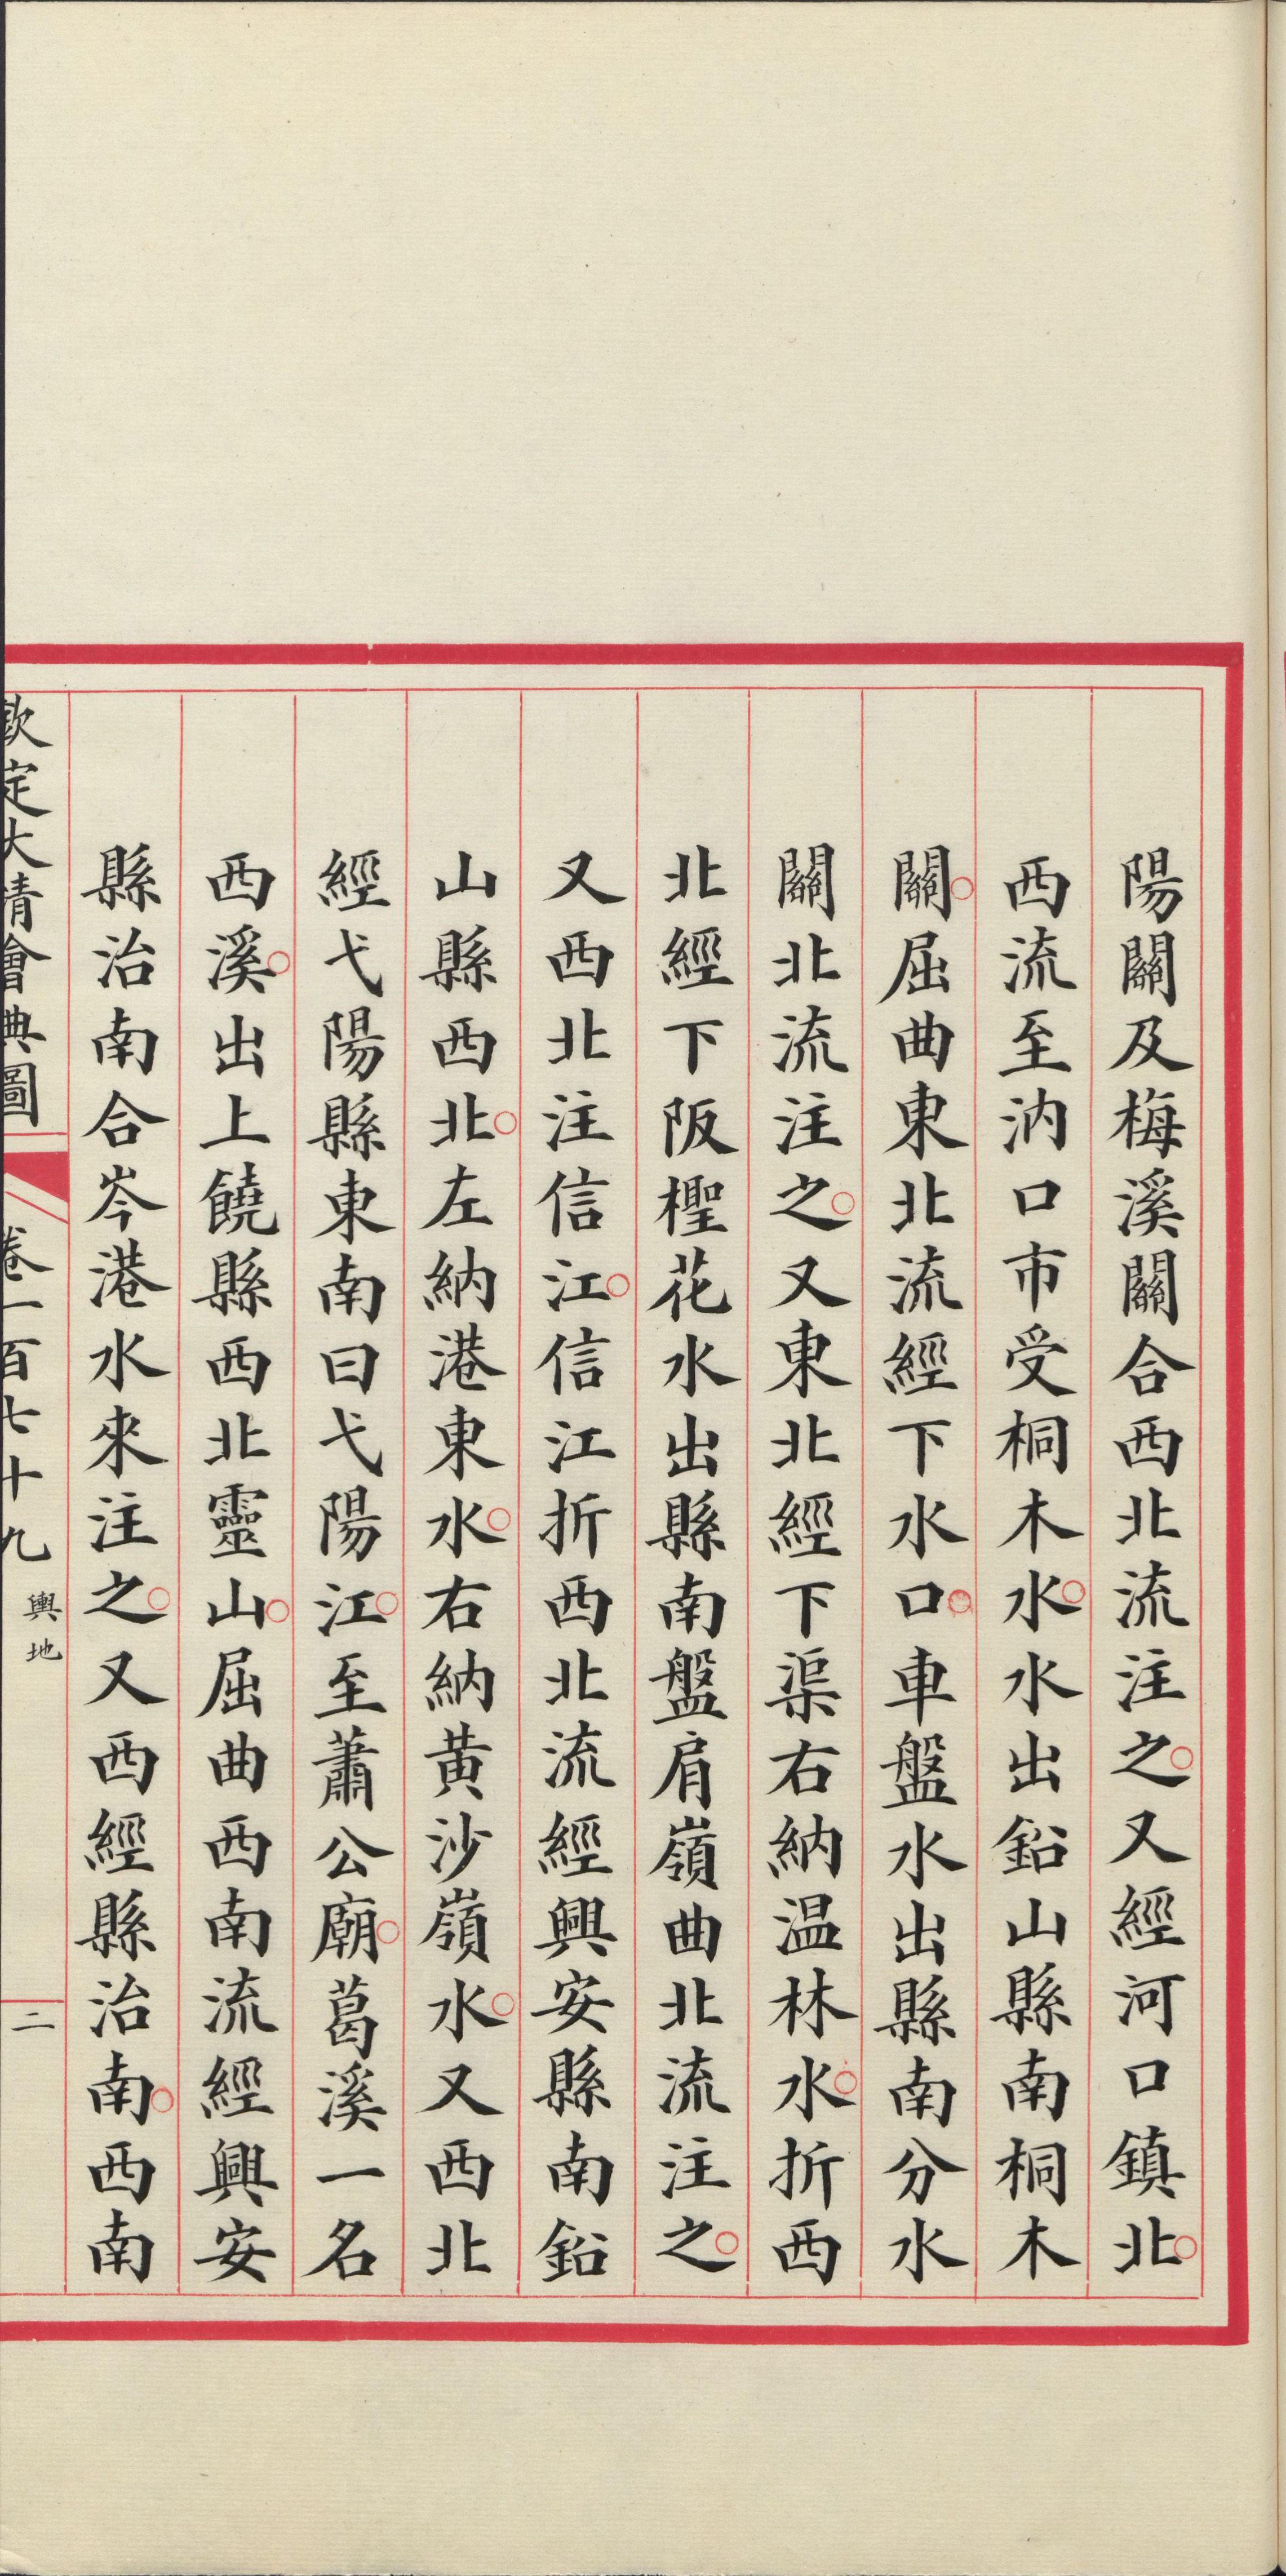 陽關及梅溪關合西北流注之○又經河口鎮北○
西流至汭口市受桐木水○水出鉛山縣南桐木
關○屈曲東北流經下水口○車盤水出縣南分水
關北流注之○又東北經下渠右納温林水○折西
北經下阪檉花水出縣南盤肩嶺曲北流注之○
又西北注信江○信江折西北流經興安縣南鉛
山縣西北○左納港東水○右納黄沙嶺水○又西北
經弋陽縣東南曰弋陽江○至蕭公廟○葛溪一名
西溪○出上饒縣西北靈山○屈曲西南流經興安
縣治南合岑港水來注之○又西經縣治南○西南
欽定大清會典圖 卷一百七十九 輿地 二